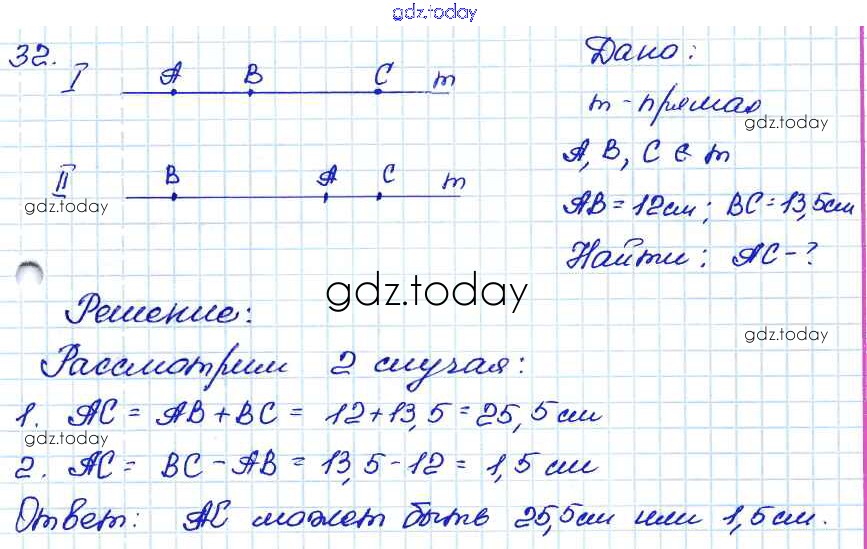 gdz.today
32.
I A B C m
Дано:
m - прямая
gdz.today
A, B, C ∈ m
II B A C m
gdz.today
AB = 12см; BC = 13,5см
Найти: AC - ?
gdz.today
Решение:
gdz.today
Рассмотрим 2 случая:
1. AC = AB + BC = 12 + 13,5 = 25,5 см
gdz.today
2. AC = BC - AB = 13,5 - 12 = 1,5 см
Ответ: AC может быть 25,5см или 1,5см.